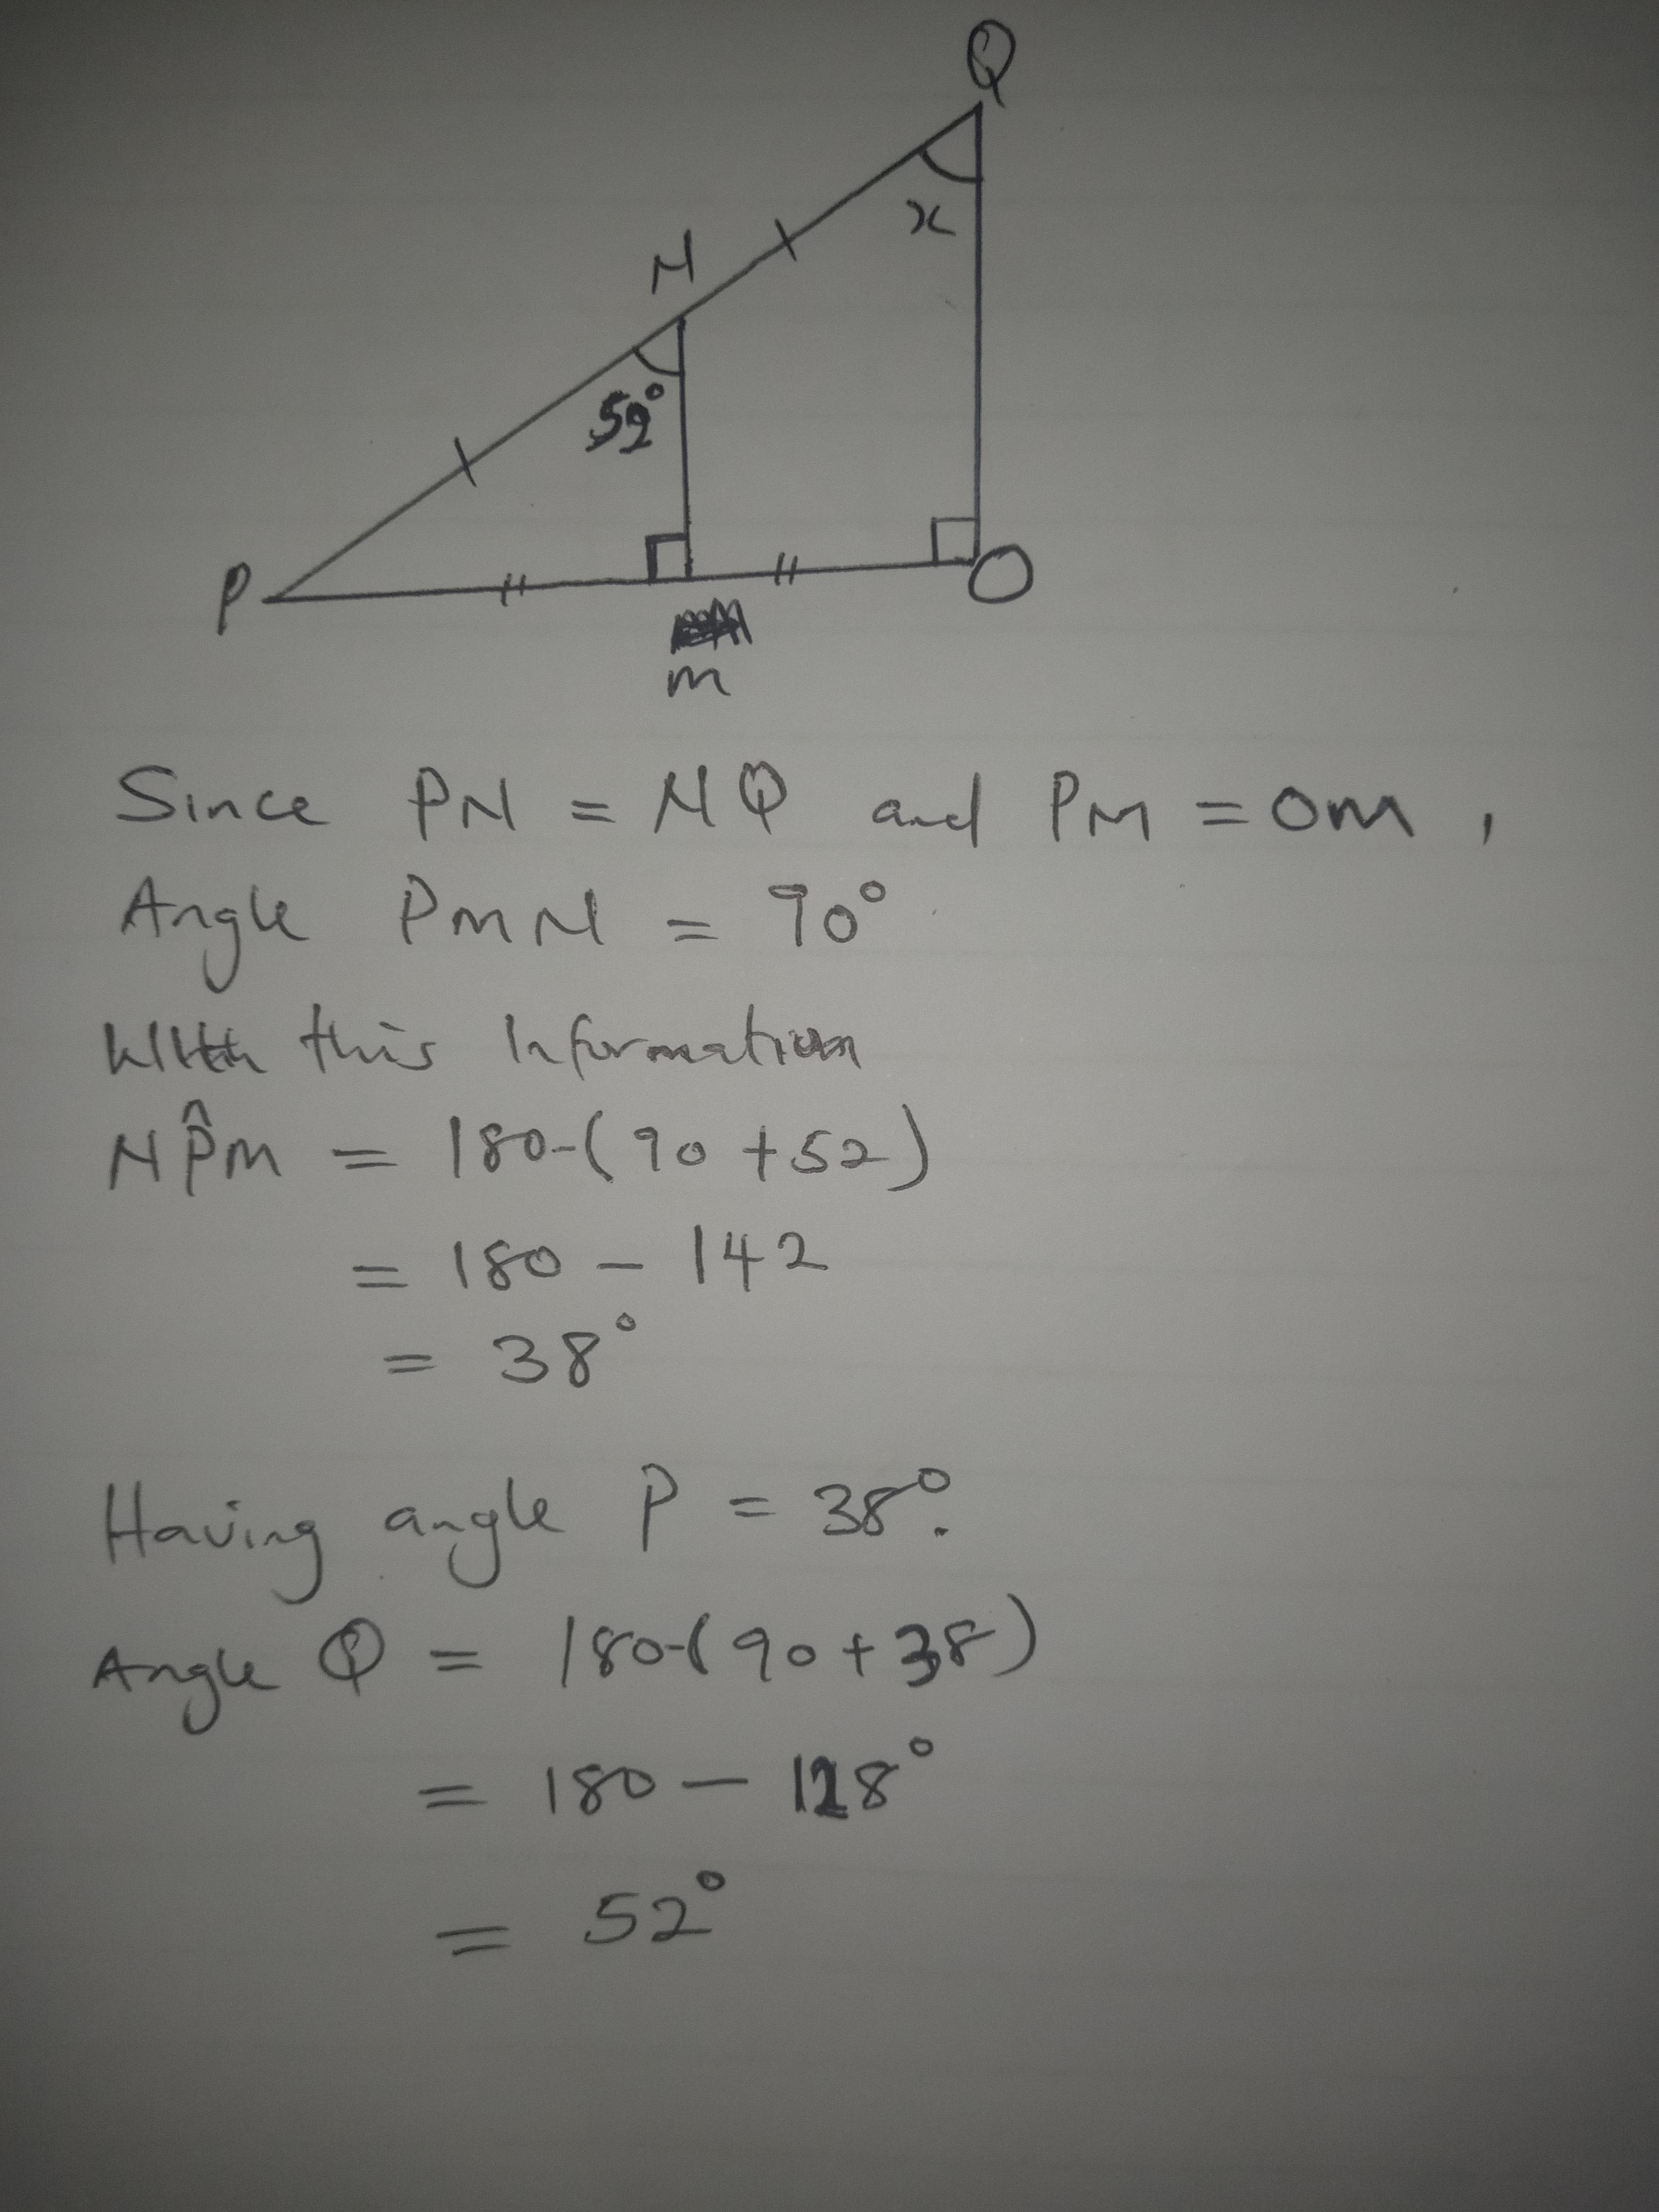 Q
x
N
52°
P
O
m
Since PN = NQ and PM = OM,
Angle PMN = 90°
With this Information
NP̂M = 180-(90+52)
= 180 - 142
= 38°
Having angle P = 38°.
Angle Q = 180-(90+38)
= 180 - 128°
= 52°